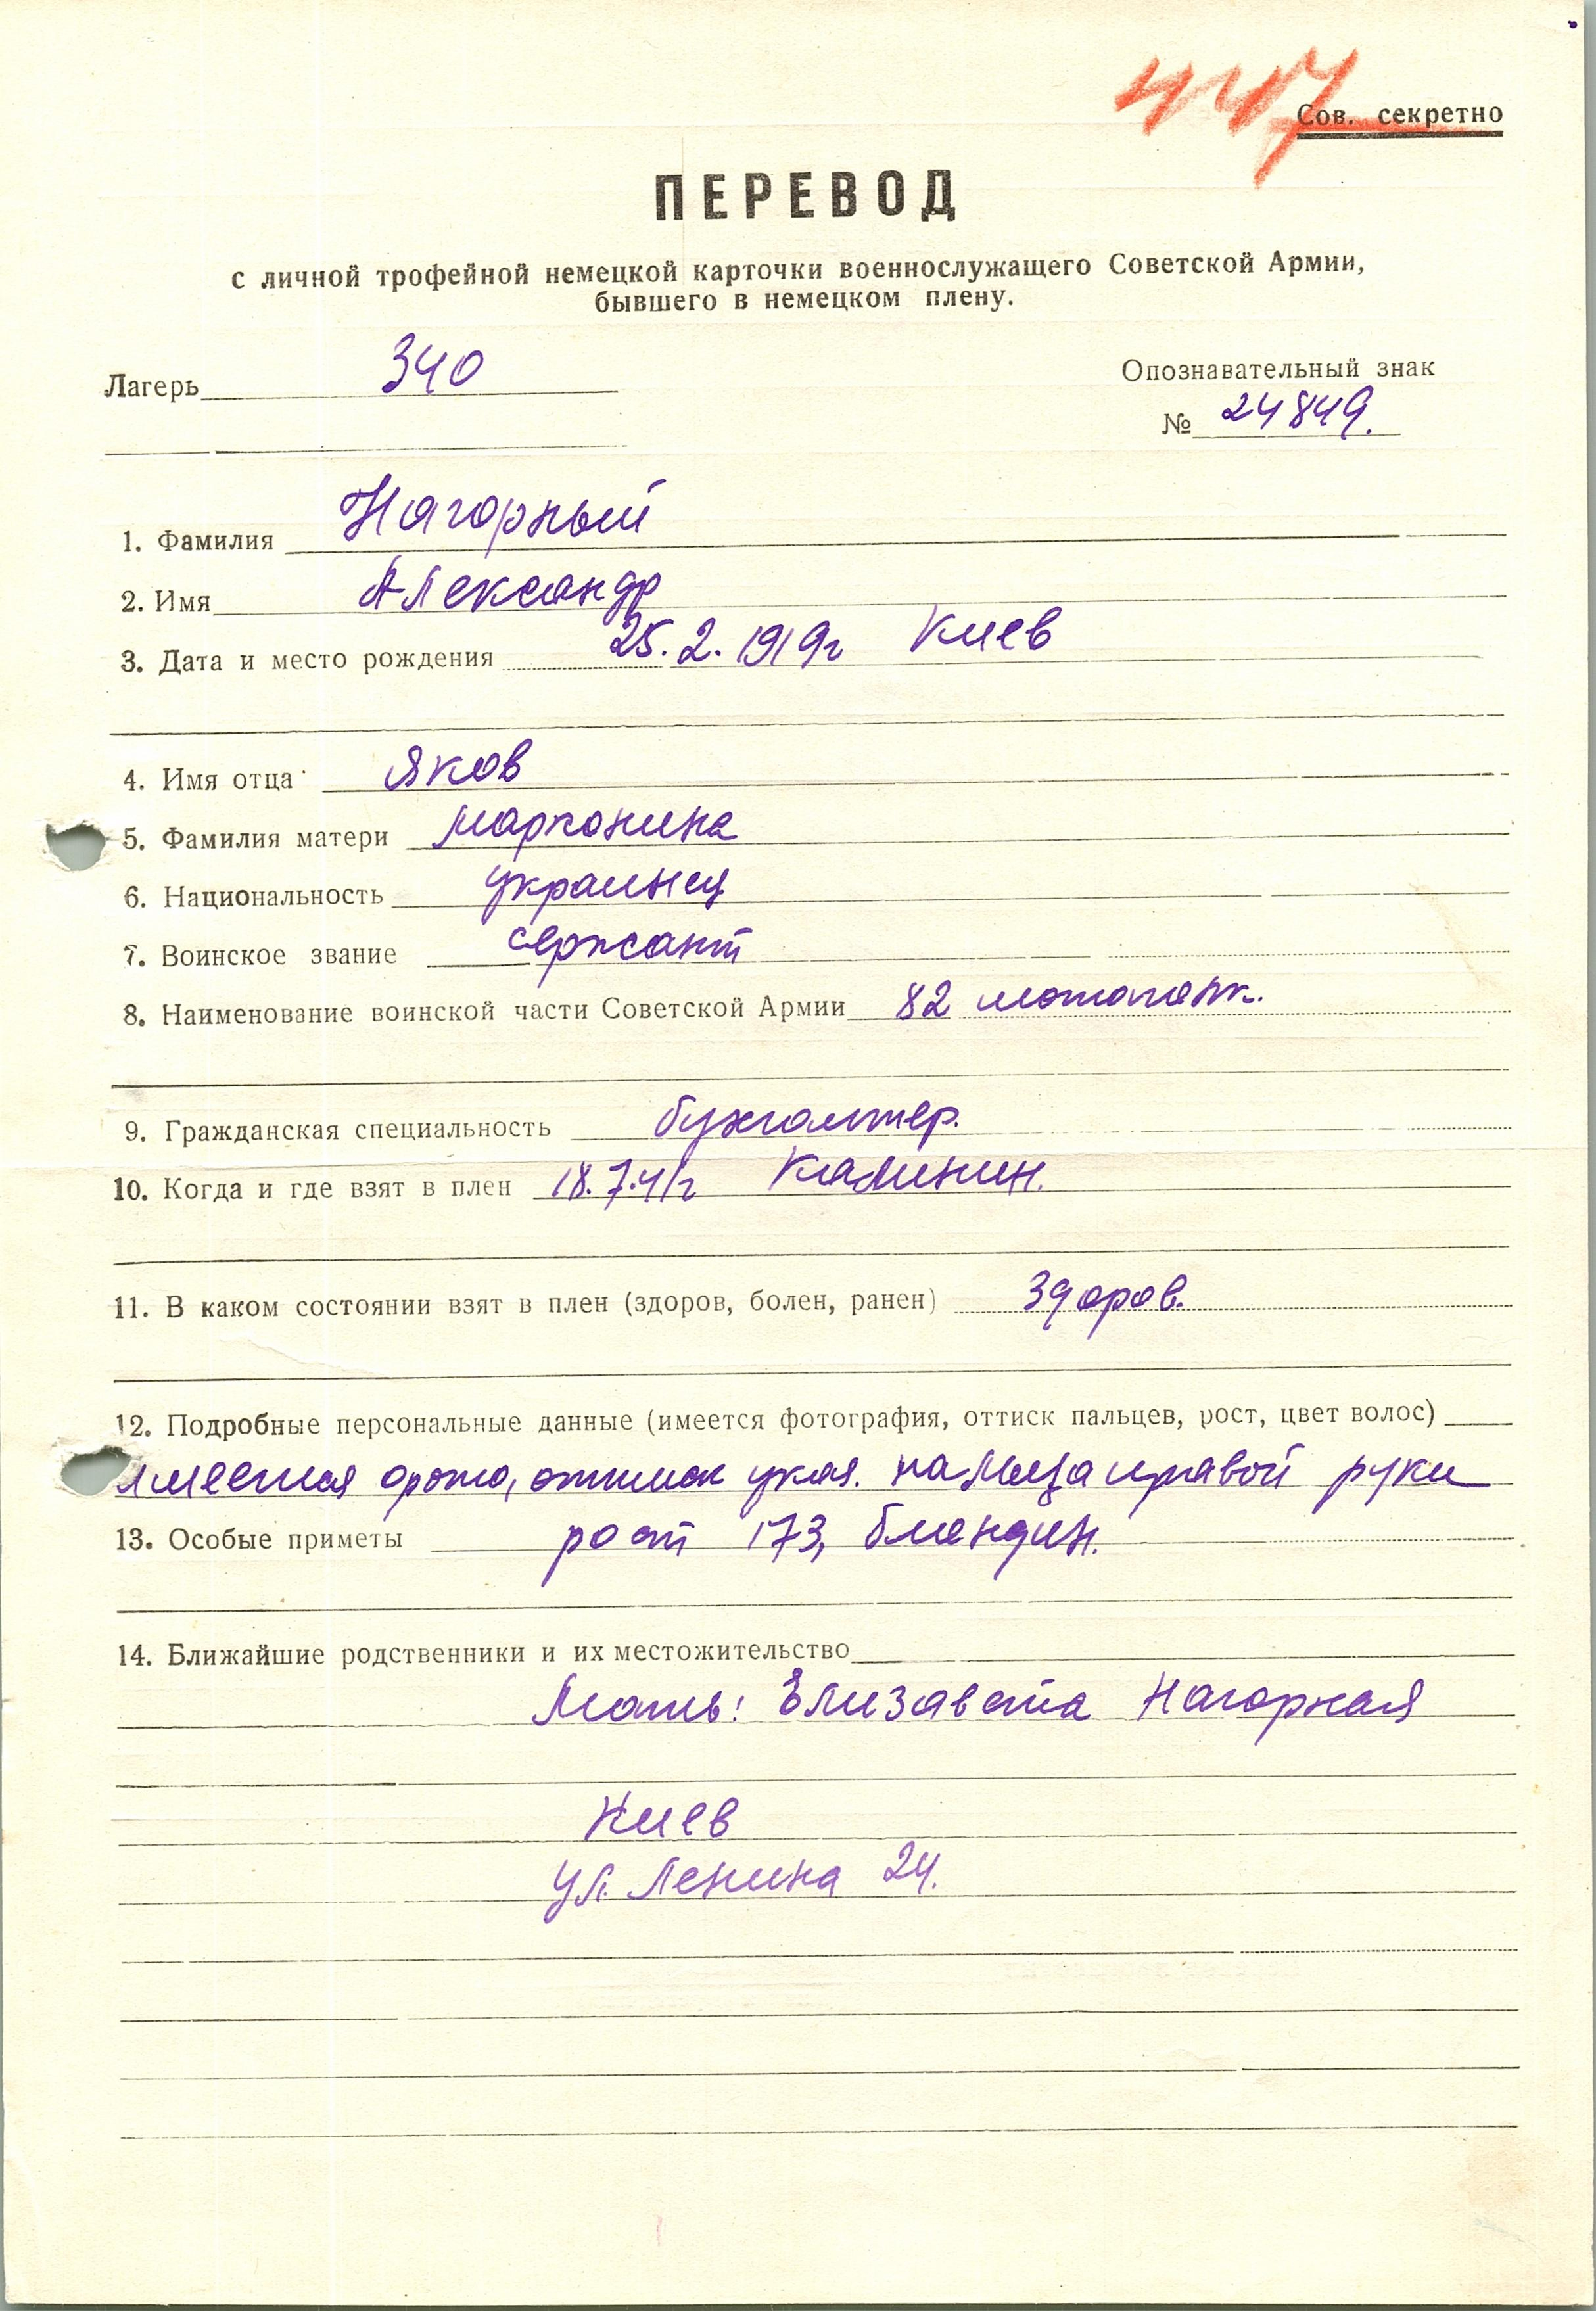 447
Сов. секретно
ПЕРЕВОД
с личной трофейной немецкой карточки военнослужащего Советской Армии,
бывшего в немецком плену.
Лагерь 340
Опознавательный знак
№ 24849.
1. Фамилия Нагорный
2. Имя Александр
3. Дата и место рождения 25.2.1919г Киев
4. Имя отца Яков
5. Фамилия матери Марконина
6. Национальность украинец
7. Воинское звание сержант
8. Наименование воинской части Советской Армии 82
9. Гражданская специальность бухгалтер.
10. Когда и где взят в плен 18.7.41г Калинин.
11. В каком состоянии взят в плен (здоров, болен, ранен) здоров.
12. Подробные персональные данные (имеется фотография, оттиск пальцев, рост, цвет волос)
имеется фото, оттиск указ. пальца правой руки
13. Особые приметы рост 173, блондин.
14. Ближайшие родственники и их местожительство
Мать: Елизавета Нагорная
Киев
ул. Ленина 24.